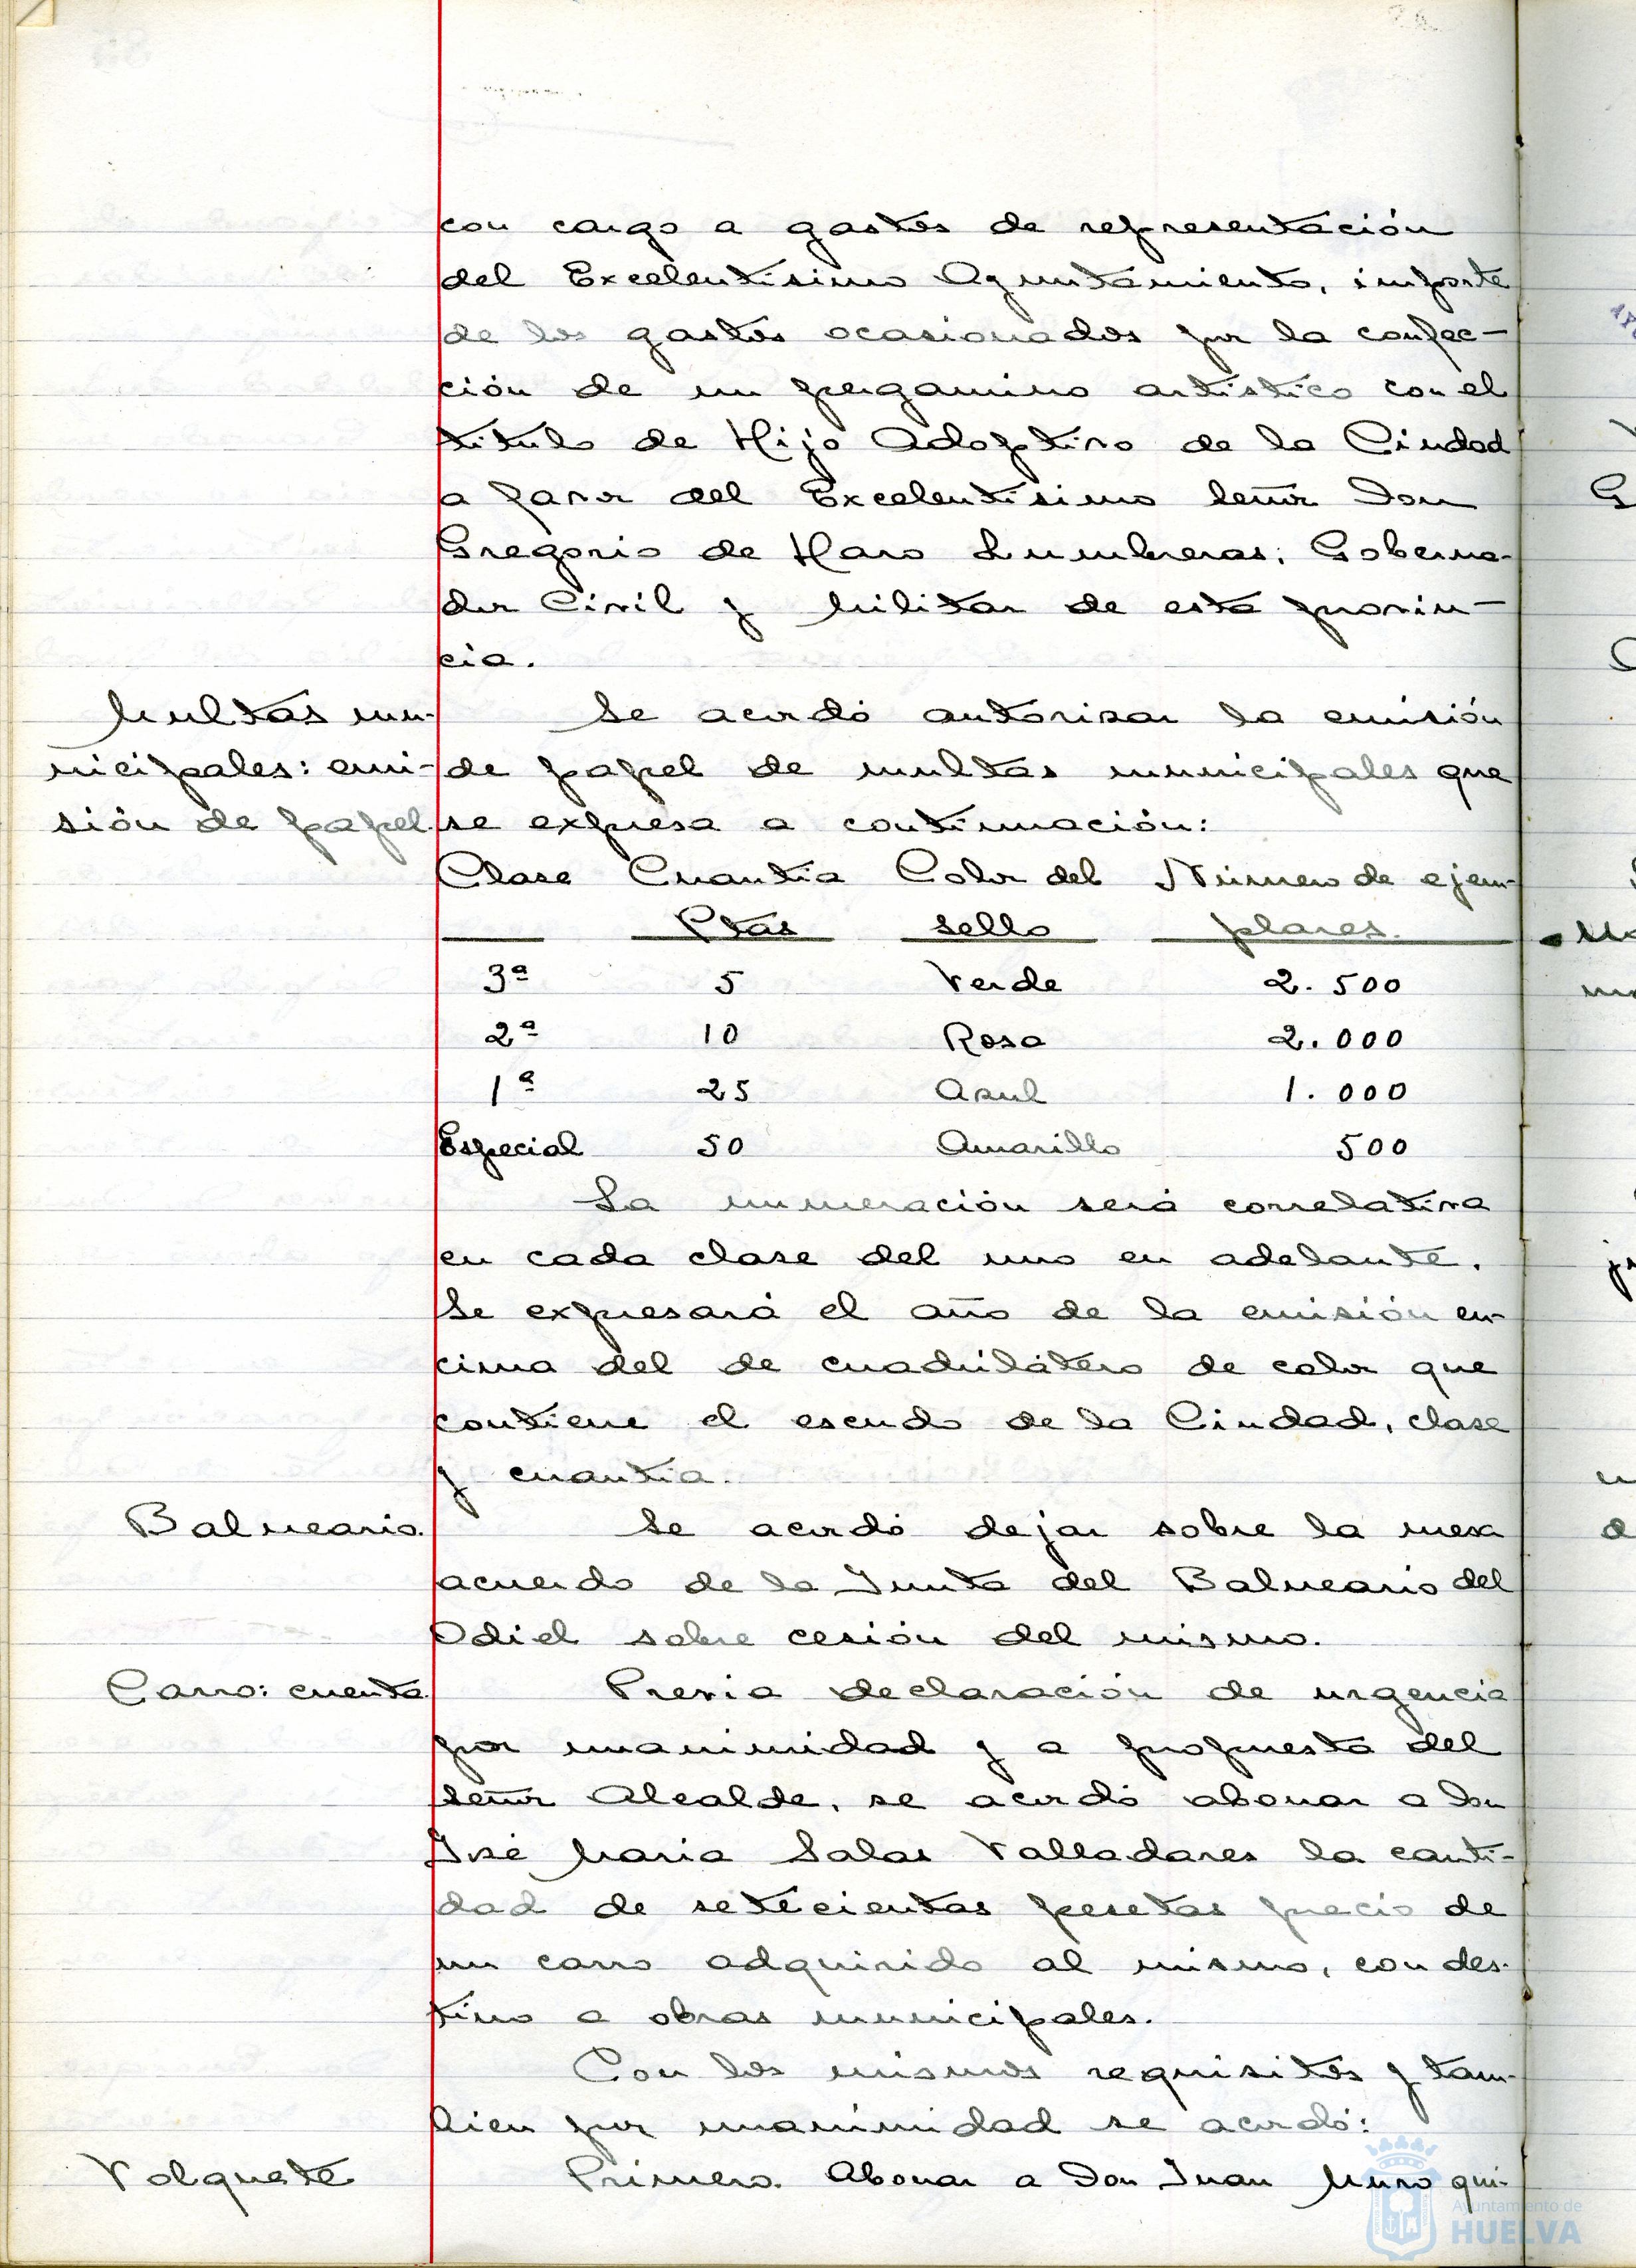 con cargo a gastos de representación
del Excelentísimo Ayuntamiento, importe
de los gastos ocasionados por la confec-
ción de un pergamino artístico con el
título de Hijo Adoptivo de la Ciudad
a favor del Excelentísimo Señor Don
Gregorio de Haro Lumbreras; Goberna-
dor Civil y Militar de esta provin-
cia.
Multas mu-
nicipales: emi-
sión de papel.
Se acordó autorizar la emisión
de papel de multas municipales que
se expresa a continuación:
Clase Cuantía Color del Número de ejem-
Ptas sello plares.
3ª 5 Verde 2.500
2ª 10 Rosa 2.000
1ª 25 Azul 1.000
Especial 50 Amarillo 500
La numeración será correlativa
en cada clase del uno en adelante.
Se expresará el año de la emisión en-
cima del de cuadrilátero de color que
contiene el escudo de la Ciudad, clase
y cuantía.
Balneario.
Se acordó dejar sobre la mesa
acuerdo de la Junta del Balneario del
Odiel sobre cesión del mismo.
Carro: cuenta.
Previa declaración de urgencia
por unanimidad y a propuesta del
Señor Alcalde, se acordó abonar a Don
José María Salas Valladares la canti-
dad de setecientas pesetas precio de
un carro adquirido al mismo, con des-
tino a obras municipales.
Con los mismos requisitos y tam-
bien por unanimidad se acordó:
Volquete
Primero. Abonar a Don Juan Muro qui-
Ayuntamiento de
HUELVA